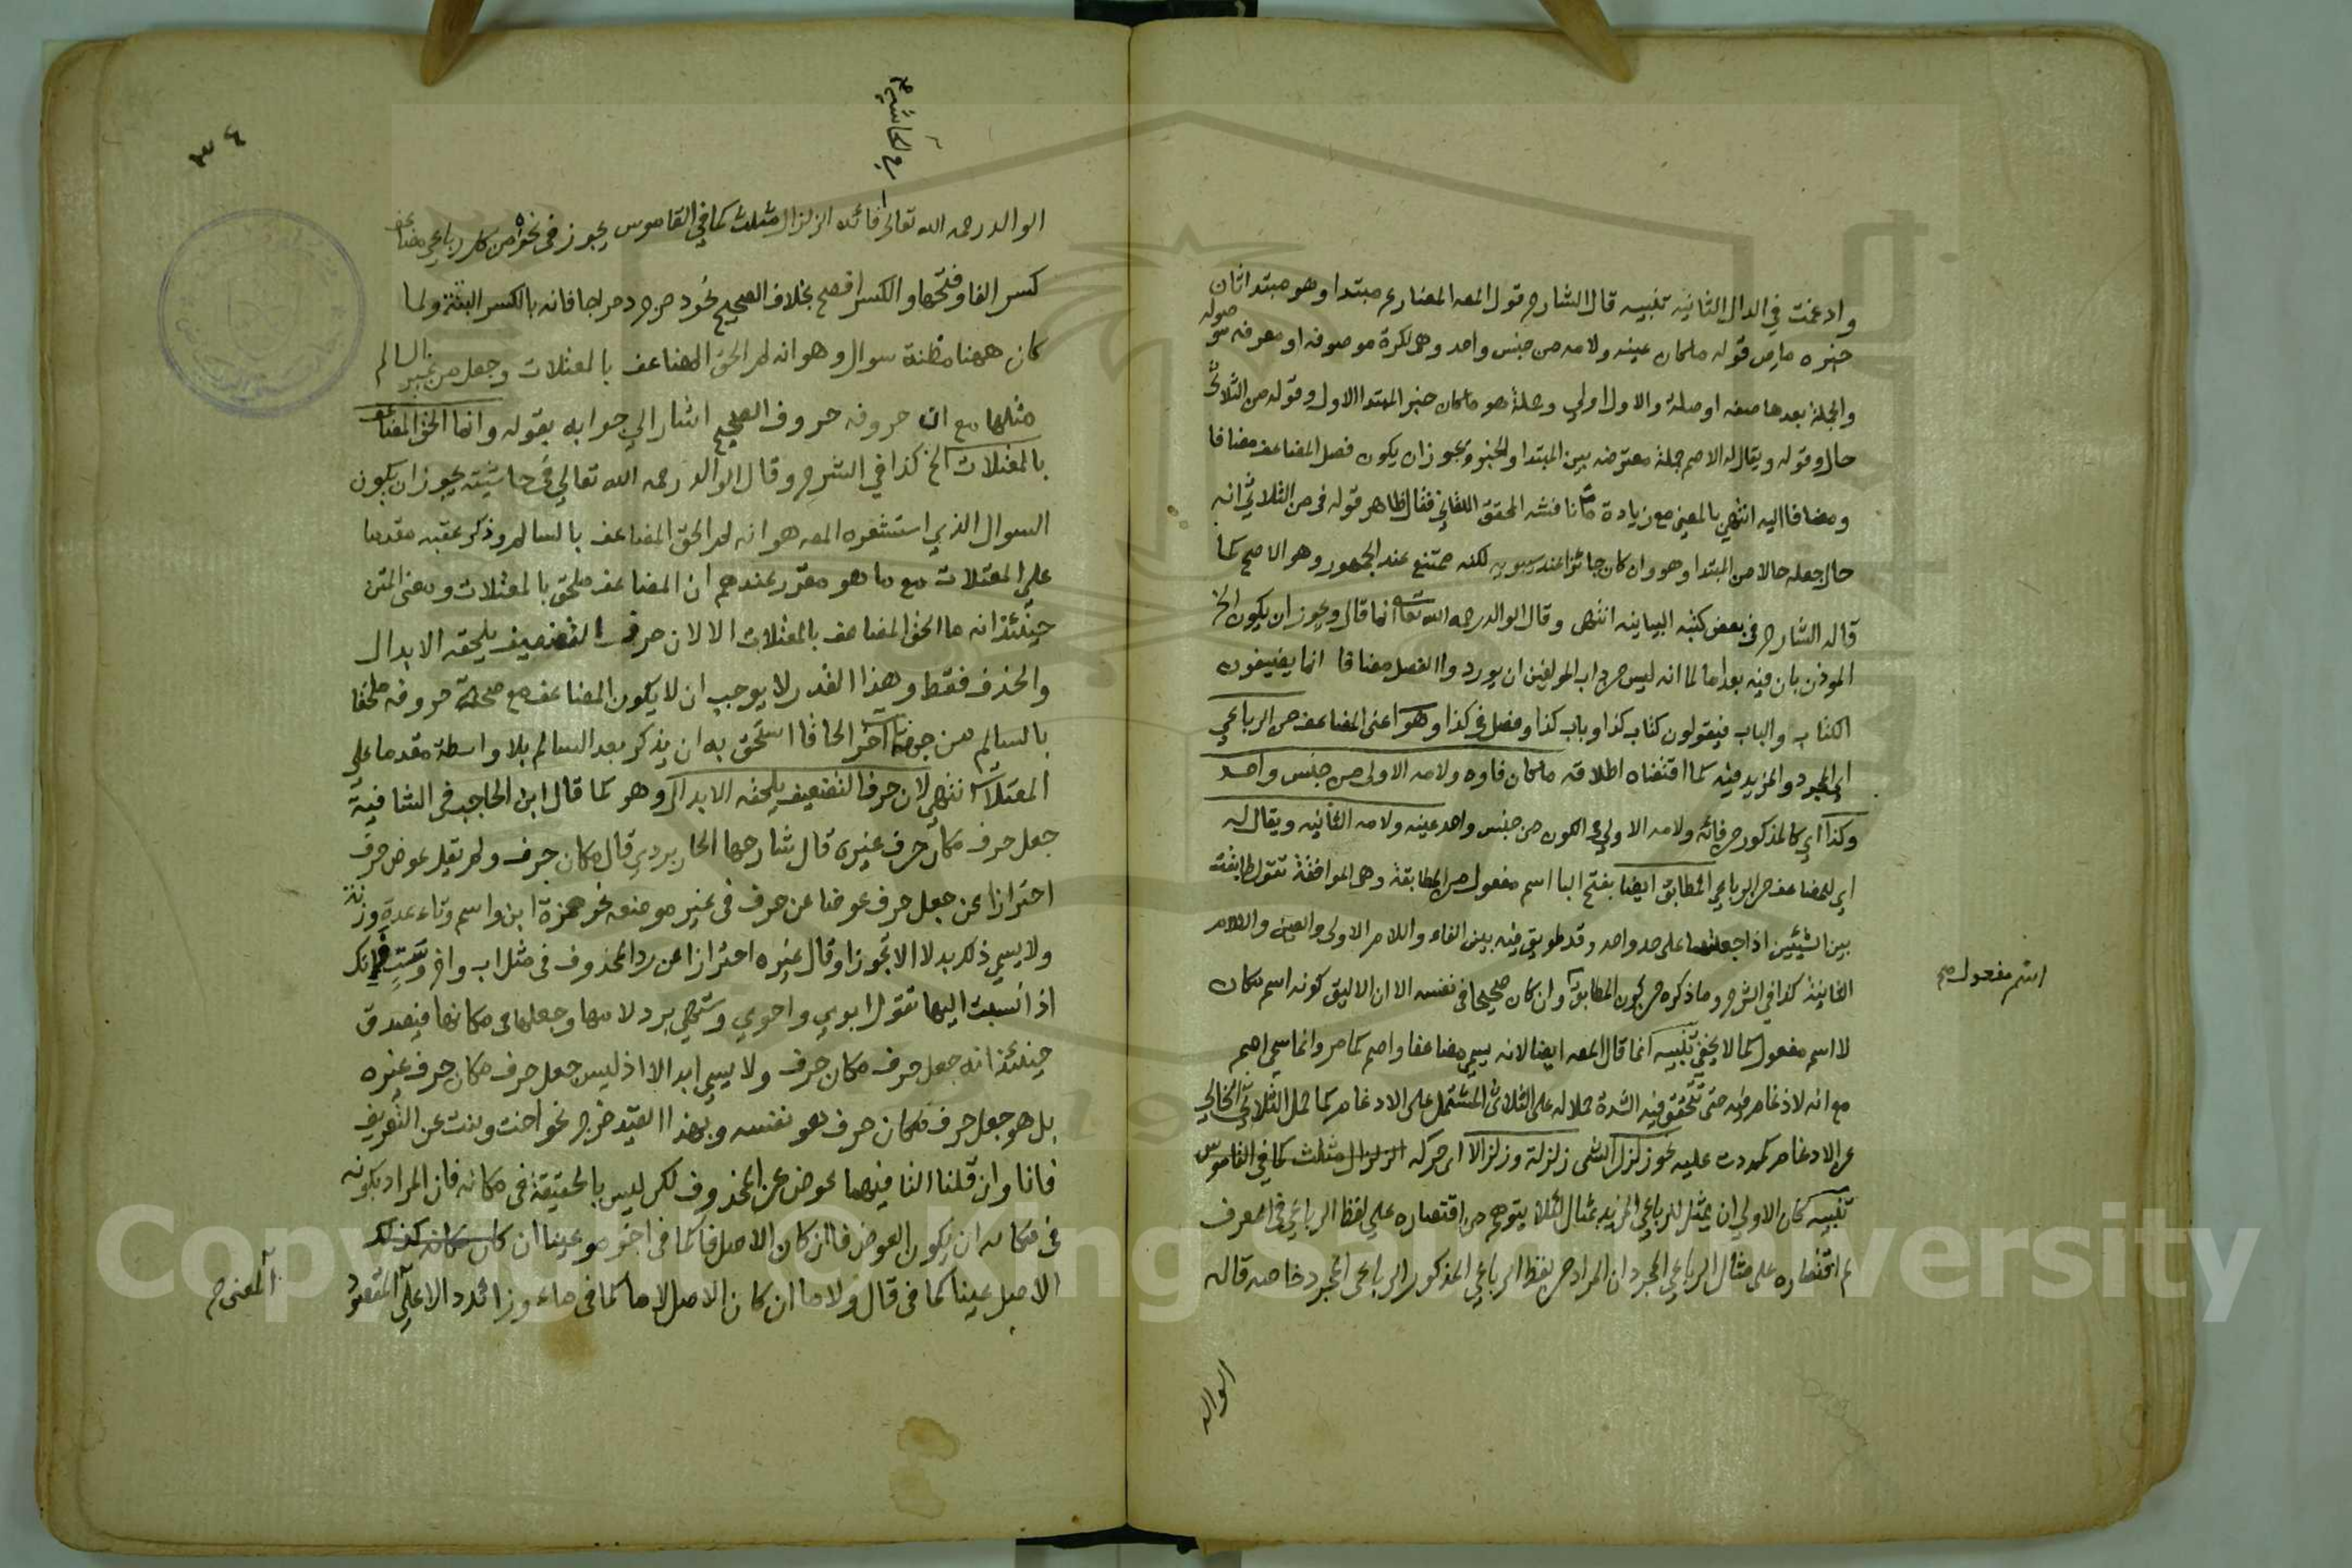 وادغمت في الدال الثانية تنبيه قال الشارح قول المصه المضارع مبتدا وهو مبتدا ثان
خبره ما من قوله ما كان عينه ولامه من جنس واحد وهي نكرة موصوفه او معرفه موصوله
والجملة بعدها صفه او صلة والاول اولي وجملة هو ما كان خبر المبتدا الاول وقوله من الثلاثي
حال وقوله ويقال له الاصم جملة معترضه بين المبتدا والخبر ويجوز ان يكون فصل المضاعف مضافا
ومضافا اليه انتهي بالمعني مع زيادة ما ناقشه المحقق اللقاني فقال ظاهر قوله في من الثلاثي انه
حال جعله حالا من المبتدا وهو وان كان جائزا عند سيبويه لكنه ممتنع عند الجمهور وهو الاصح كما
قاله الشارح في بعض كتبه البيانيه انتهى وقال الوالد رحمه الله تعا انما قال ويجوز ان يكون الخ
الموذن بان فيه بعدا ما لما انه ليس من داب المولفين ان يوردوا الفصل مضافا انما يضيفون
الكتاب والباب فيقولون كتاب كذا وباب كذا وفصل في كذا وهو اعني المضاعف من الرباعي
اي المجرد والمزيد فيه كما اقتضاه اطلاقه ما كان فاوه ولامه الاولى من جنس واحد
وكذا اي كالمذكور من فائه ولامه الاولي في الكون من جنس واحد عينه ولامه الثانيه ويقال له
اي للمضاعف من الرباعي المطابق ايضا بفتح البا اسم مفعول من المطابقة وهي الموافقة تقول طابقت
بين الشيئين اذا جعلتهما على حد واحد وقد طوبق فيه بين الفاء واللام الاولى والعين واللام
الثانية كذا في الشرح وما ذكره من كون المطابق وان كان صحيحا في نفسه الا ان الاليق كونه اسم مكان
اسم مفعول صح
لا اسم مفعول كما لا يخفي تنبيه انما قال المصه ايضا لانه يسمي مضاعفا واصم كما مر وانما سمي اصم
مع انه لا ادغام فيه حتى تتحقق فيه الشدة حملا له على الثلاثي المشتمل على الادغام كما حمل الثلاثي الخالي
عن الادغام كمددت عليه نحو زلزل الشي زلزلة وزلزالا اي حركه الزلزال مثلث كما في القاموس
تنبيه كان الاولي ان يمثل للرباعي المزيد بمثال لئلا يتوهم من اقتصاره علي لفظ الرباعي في المعرف
ثم اقتصاره على مثال الرباعي المجرد ان المراد من لفظ الرباعي المذكور الرباعي المجرد خاصه قاله
الوالد
٣٤
في الحاشيه صح
الوالد رحمه الله تعالى فائده الزلزال مثلث كما في القاموس يجوز في نحوه من كل رباعي مضاعف
كسر الفا وفتحها والكسر افصح بخلاف الصحيح نحو دحرج دحراجا فانه بالكسر البتة ولما
كان ههنا مظنة سوال وهو انه لم الحق المضاعف بالمعتلات وجعل من غير السالم
مثلها مع ان حروفه حروف الصحيح اشار الي جوابه بقوله وانما الحق المضاعف
بالمعتلات الخ كذا في الشرح وقال الوالد رحمه الله تعالي في حاشيته يجوز ان يكون
السوال الذي استشعره المصه هو انه لم الحق المضاعف بالسالم وذكر عقبه مقدما
علي المعتلات مع ما هو مقرر عندهم ان المضاعف ملحق بالمعتلات ومعني المتن
حينئذ انه ما الحق المضاعف بالمعتلات الا لان حرف التضعيف يلحقه الابدال
والحذف فقط وهذا القدر لا يوجب ان لا يكون المضاعف مع صحة حروفه ملحقا
بالسالم من جهات اخر الحاقا استحق به ان يذكر بعد السالم بلا واسطة مقدما علي
المعتلات انتهي لان حرف التضعيف يلحقه الابدال وهو كما قال ابن الحاجب في الشافية
جعل حرف مكان حرف غيره قال شارحها الجاربردي قال مكان حرف ولم يقل عوض حرف
احترازا عن جعل حرف عوضا عن حرف في غير موضعه نحو همزة ابن واسم وتاء عدة وزنة
ولا يسمي ذلك بدلا الا تجوزا وقال غيره احترازا عن رد المحذوف في مثل اب واخ وست فانك
اذا نسبت اليها تقول ابوي واخوي وستهي برد لامها وجعلها في مكانها فيصدق
حينئذ انه جعل حرف مكان حرف ولا يسمي ابدالا اذ ليس جعل حرف مكان حرف غيره
بل هو جعل حرف مكان حرف هو نفسه وبهذا القيد خرج نحو اخت وبنت عن التعريف
فانا وان قلنا التا فيهما عوض عن المحذوف لكن ليس بالحقيقة في مكانه فان المراد بكونه
في مكانه ان يكون العوض فا ان كان الاصل فا كما في اجوه وعينا ان كان مكانه كذلك
الاصل عينا كما في قال ولاما ان كان الاصل لاما كما في ماء وزائدا الاعلي المقصود
المعنى صح
Copyright © King Saud University